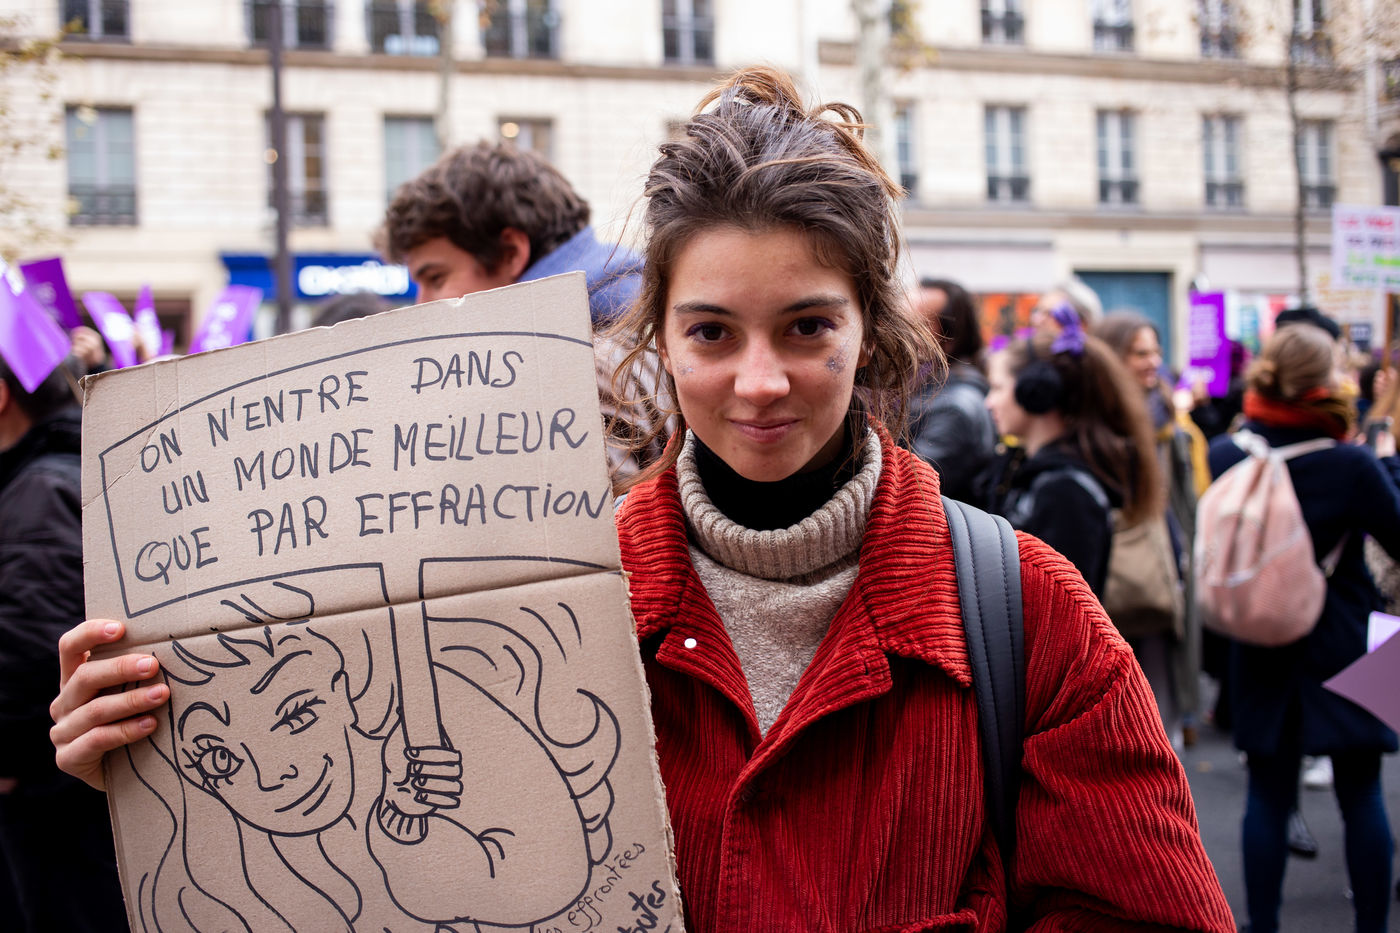 ON N'ENTRE DANS
UN MONDE MEILLEUR
QUE PAR EFFRACTION
effrontées